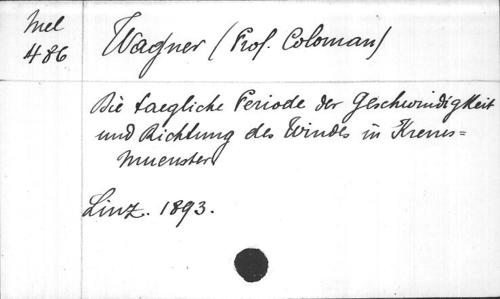 Mel
486
Wagner (Prof. Coloman)
Die taegliche Periode der Geschwindigkeit
und Richtung des Windes in Krems=
muenster
Linz. 1893.